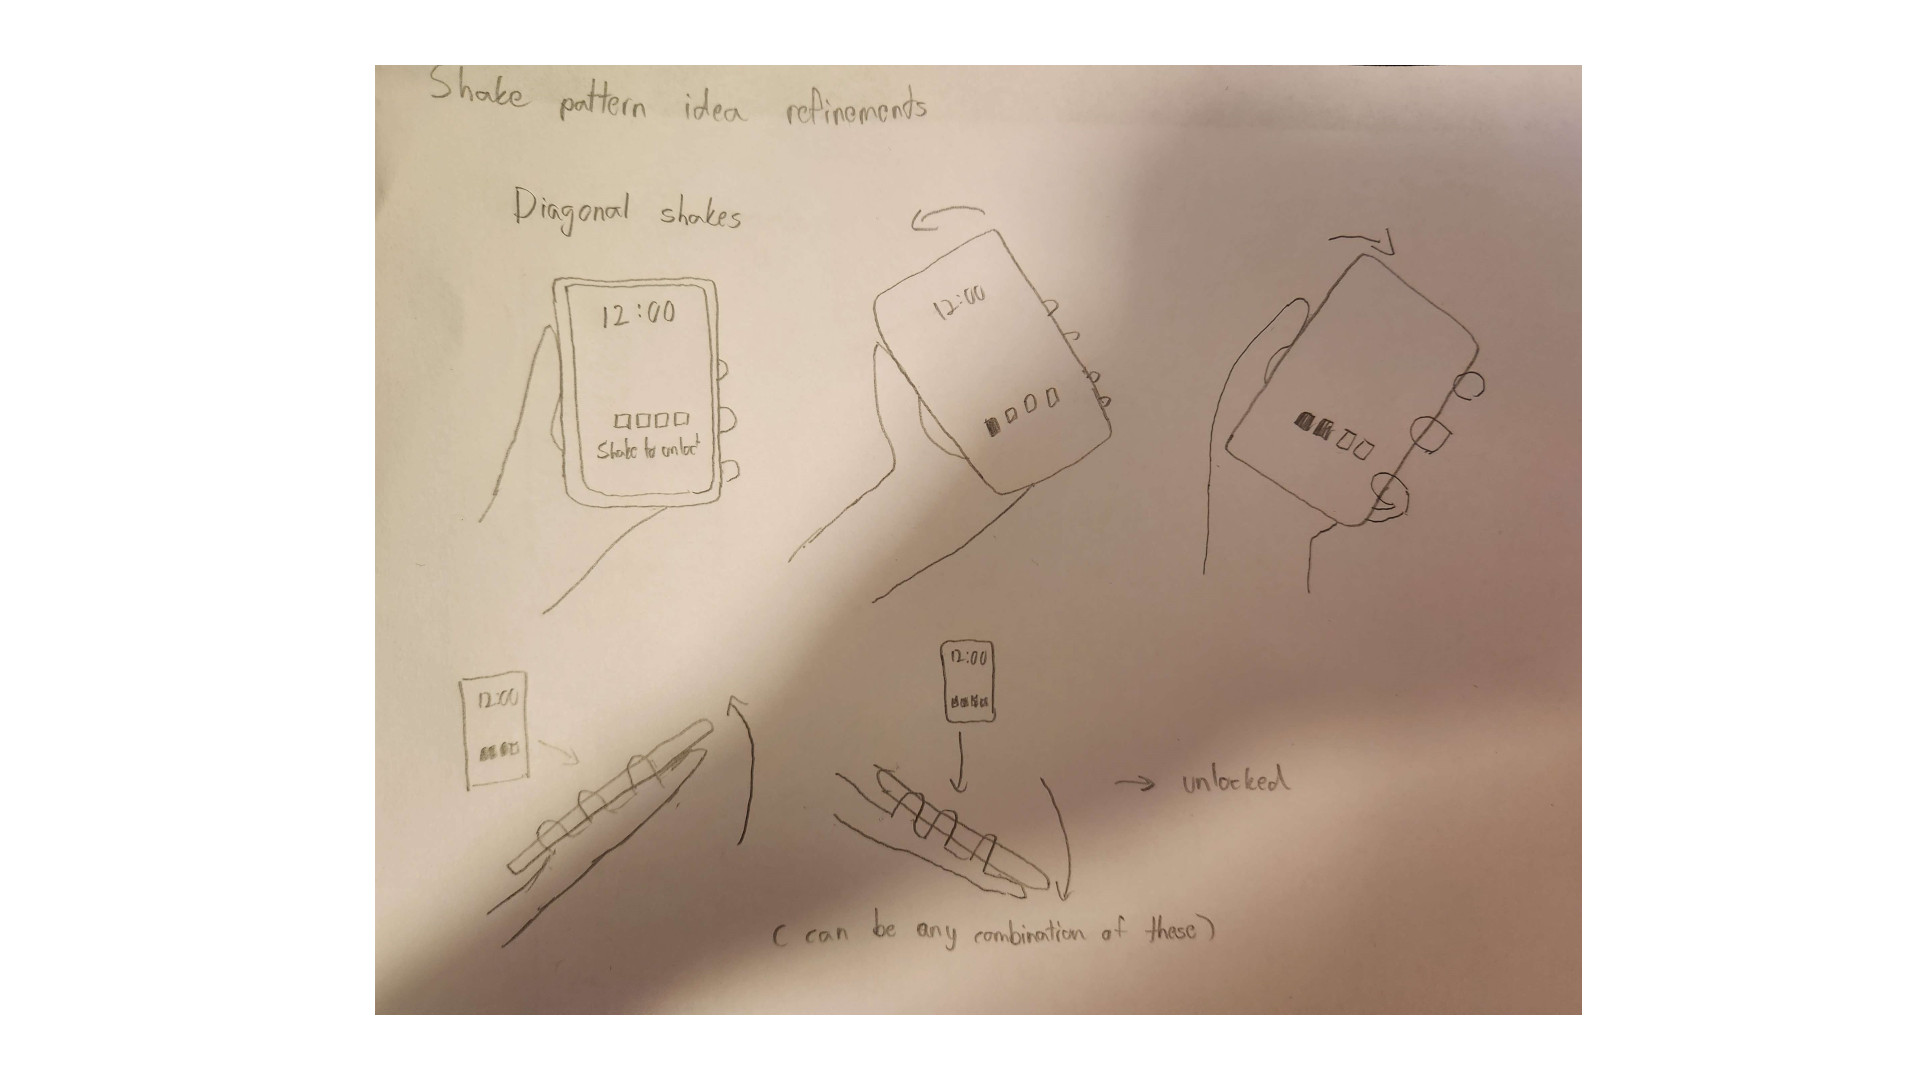 Shake pattern idea refinements
Diagonal shakes
12:00
Shake to unloc
12:00
12:00
12:00
→ unlocked
(can be any combination of these)